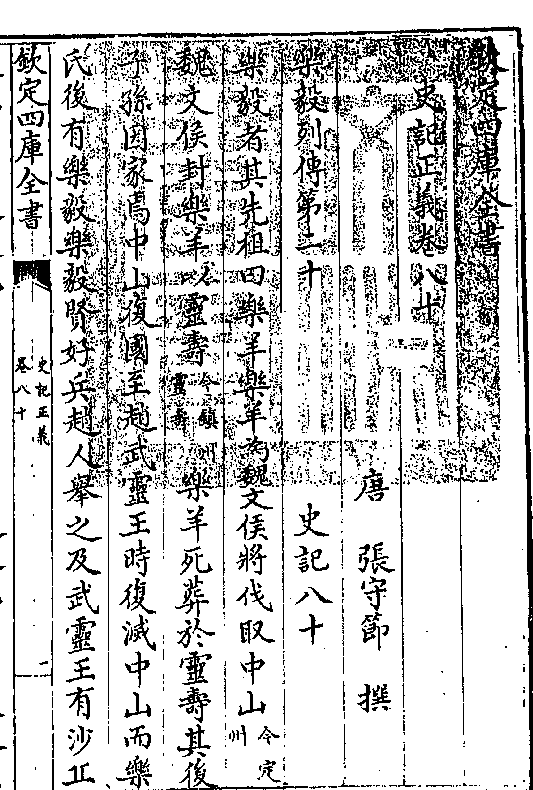 欽定四庫全書
史記正義卷八十
唐 張守節 撰
樂毅列傳第二十 史記八十
樂毅者其先祖曰樂羊樂羊為魏文侯將伐取中山今定州
魏文侯封樂羊以靈壽今鎮州靈壽樂羊死葬於靈壽其後
子孫因家焉中山復國至趙武靈王時復滅中山而樂
氏後有樂毅樂毅賢好兵趙人舉之及武靈王有沙丘
欽定四庫全書
史記正義
卷八十
一